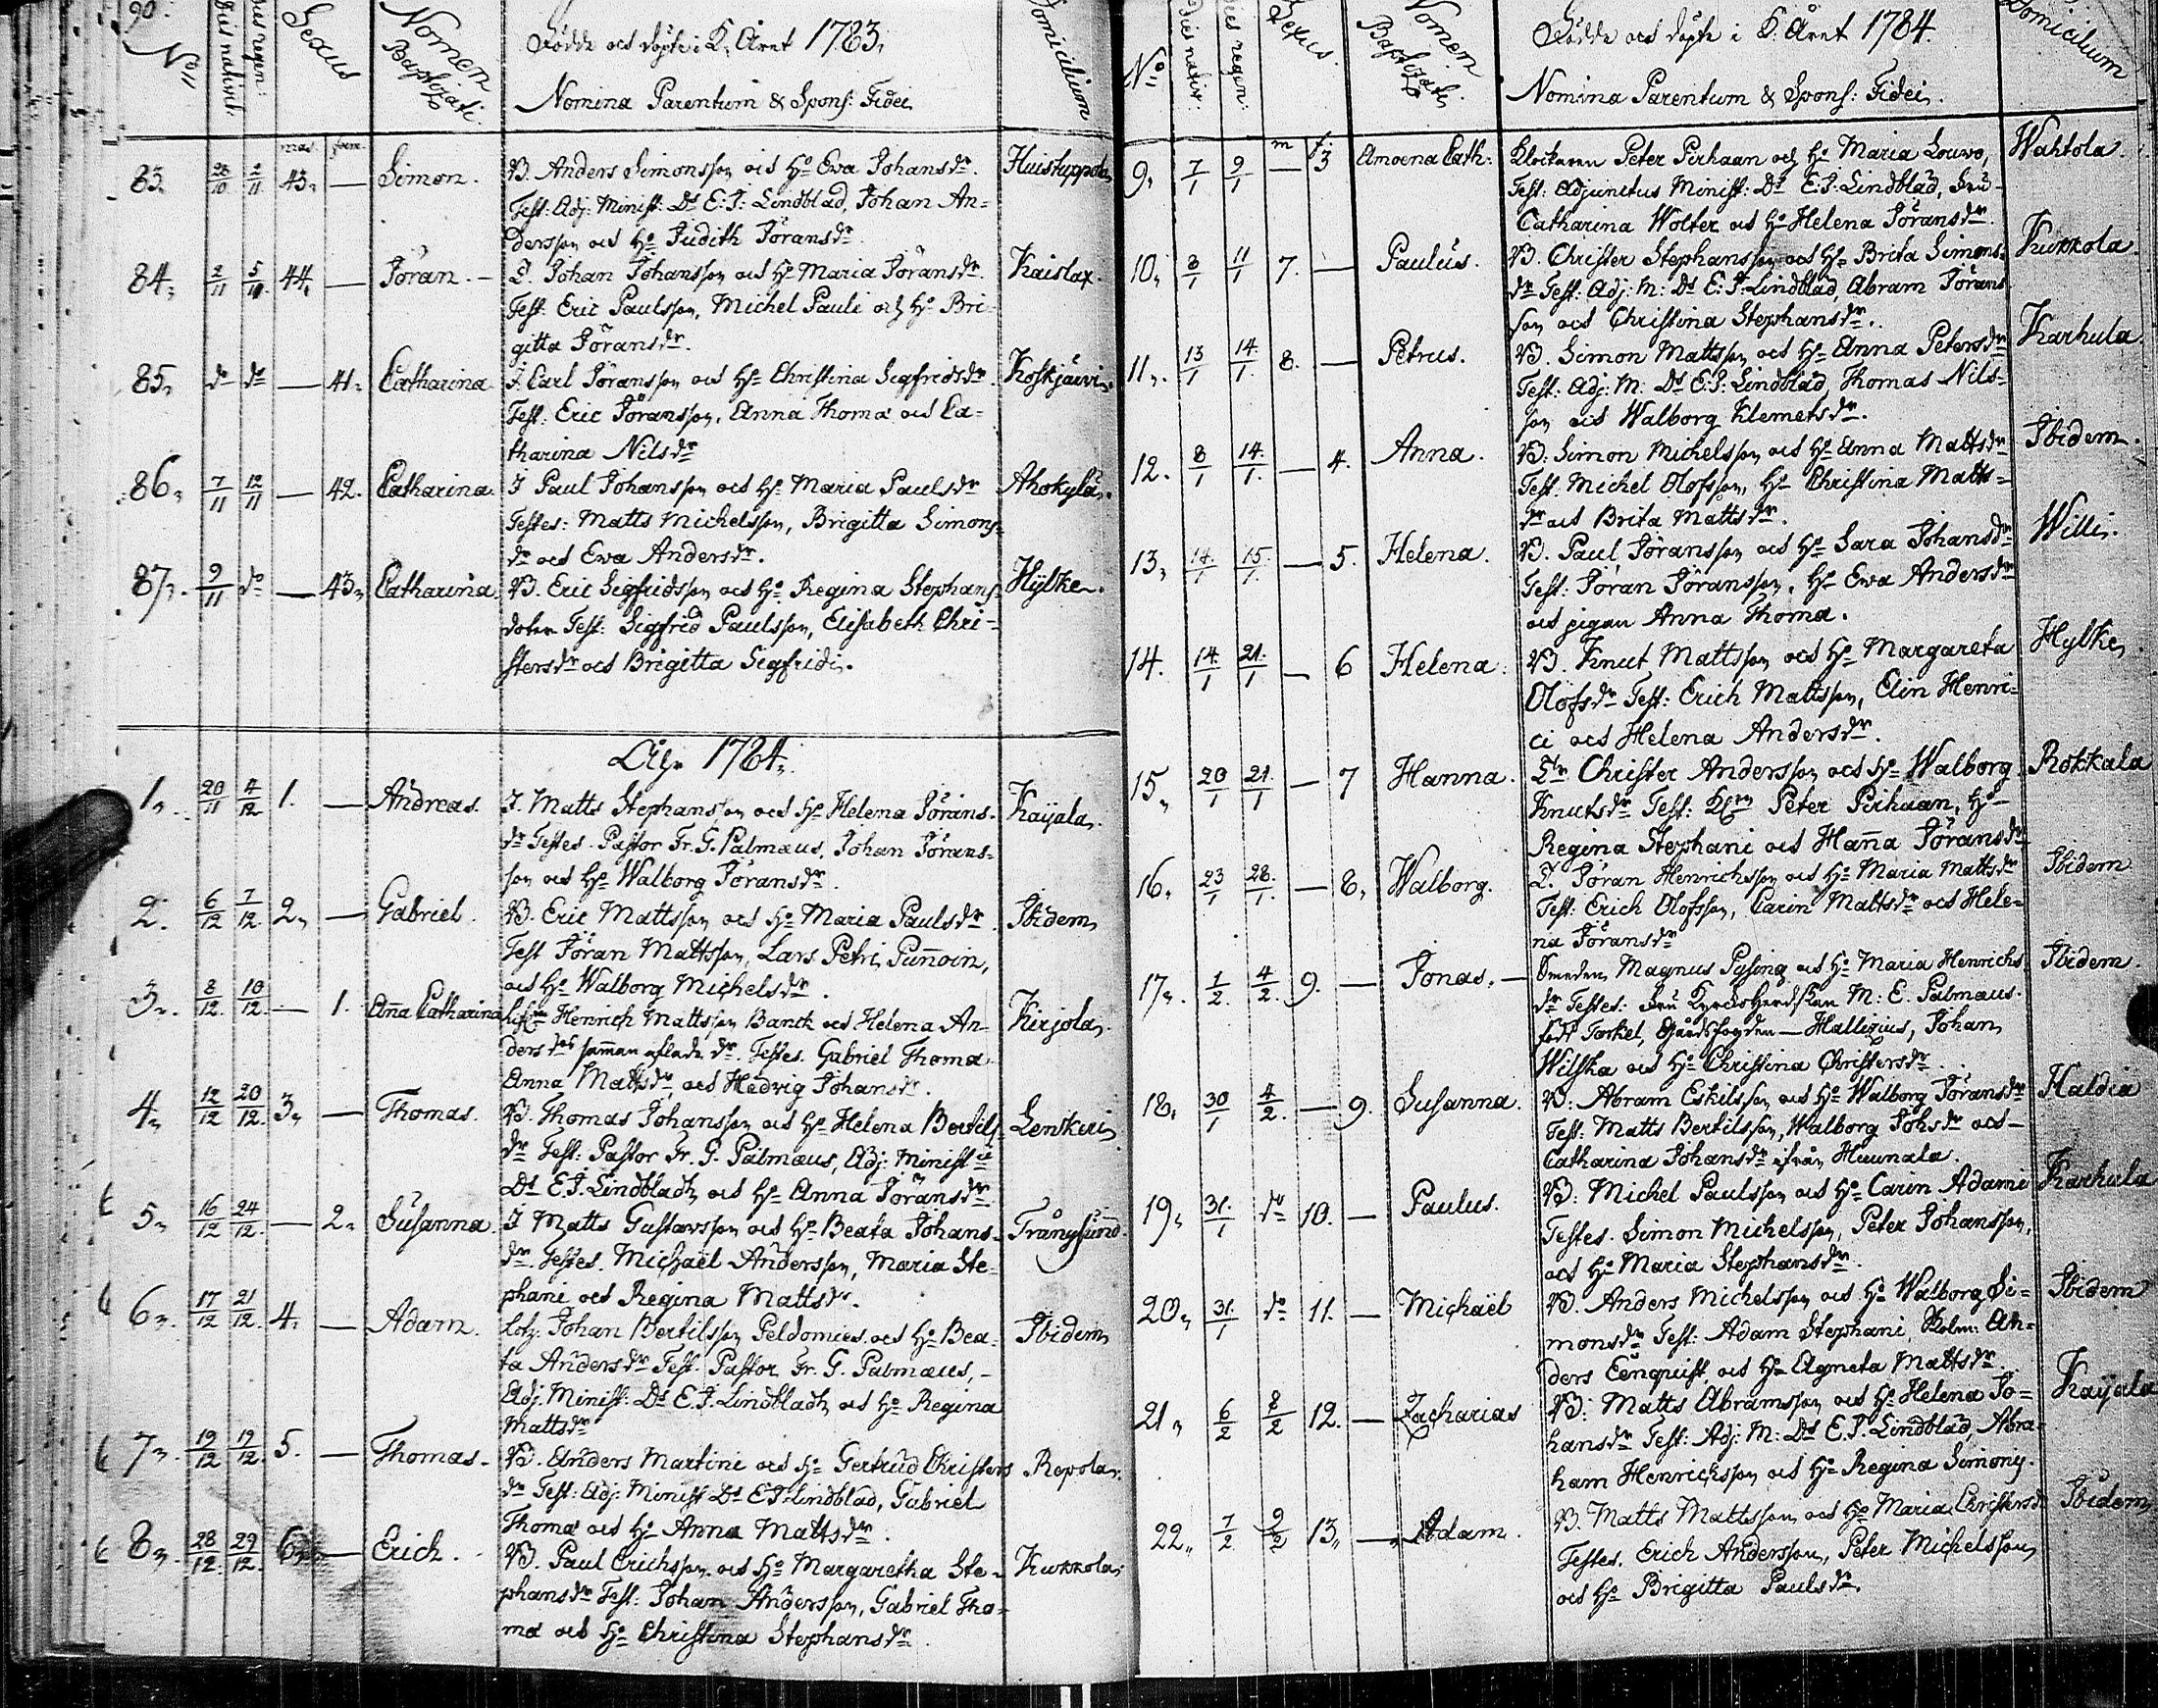 90.
No
Dies nativit:
Dies regen:
Sexus
Nomen Baptizati:
Födde och döpte i K. Året 1783.
Nomina Parentum & Spons: Fidei
Domicilium
mas. fœm.
83. 28/10 2/11 43. — Simon. B. Anders Simonsson och H:o Eva Johansdr. Huistuppola
Test: Adj: Minist: Ds E: J: Lindblad, Johan An=
dersson och H:o Judith Jöransdr
84. 2/11 5/11 44. — Jöran. — I. Johan Johansson och H:o Maria Jöransdr. Kaislax.
Test: Eric Paulsson, Michel Pauli och H:o Bri=
gitta Jöransdr.
85. do do — 41. Catharina I. Carl Jöransson och H:o Christina Sigfridsdr. Koskjärvi.
Test: Eric Jöransson, Anna Thomæ och Ca=
tharina Nilsdr
86. 7/11 12/11 — 42. Catharina. I Paul Johansson och H:o Maria Paulsdr Ahokylä.
Testes: Matts Michelsson, Brigitta Simons=
dr och Ewa Andersdr.
87. 9/11 do — 43. Catharina. B. Eric Sigfridsson och H:o Regina Stephans Hylke.
doter Test: Sigfrid Paulsson, Elisabeth Chri=
stersdr och Brigitta Sigfridi.
Åhr 1784.
1. 20/11 4/12 1. — Andreas. I. Matts Stephansson och H:o Helena Jörans= Kaijala.
dr Testes. Pastor Fr. G. Palmæus, Johan Jörans=
son och H:o Walborg Jöransdr.
2. 6/12 7/12 2. — Gabriel. B. Eric Mattsson och H:o Maria Paulsdr Ibidem
Test Jöran Mattsson, Lars Petri Punnoin,
och H:o Walborg Michelsdr.
3. 8/12 10/12 — 1. Anna Catharina Henrich Mattsson Banck och Helena An= Kirjola.
dersdrs samman aflade dr. Testes. Gabriel Thomæ
Anna Mattsdr och Hedvig Johansdr.
4. 12/12 20/12 3. — Thomas. B. Thomas Johansson och H:o Helena Bertils= Lenkeri
dr Test: Pastor Fr. G. Palmæus, Adj: Minist:ii
Ds E. J. Lindbladh och H:o Anna Jöransdr
5. 16/12 24/12 — 2. Susanna. I Matts Gustavsson och H:o Beata Johans= Trångsund.
dr Testes. Michaël Andersson, Maria Ste=
phani och Regina Mattsdr.
6. 17/12 21/12 4. — Adam. Johan Bertilsson Peldomies och H:o Bea= Ibidem
ta Andersdr Test. Pastor Fr. G. Palmæus, —
Adj. Minist: Ds E. J. Lindbladh och H:o Regina
Mattsdr
7. 19/12 19/12 5. — Thomas. B. Anders Martini och H:o Gertrud Christers Repola.
dr Test: Adj: Minist Ds E J Lindblad, Gabriel
Thomæ och H:o Anna Mattsdr.
8. 28/12 29/12 6. — Erich. B. Paul Erichsson och H:o Margaretha Ste= Kukkola.
phansdr Test: Johan Andersson, Gabriel Tho=
mæ och H:o Christina Stephansdr.
No
Dies nativ:
Dies regen:
Sexus.
Nomen Baptizati.
Födde och döpte i K. Året 1784.
Nomina Parentum & Spons: Fidei.
Domicilium
m f:
9. 7/1 9/1 — 3 Amoena Cath: Klockaren Peter Pirhaan och H:o Maria Louwo, Wahtola.
Test: Adjunctus Minist: Ds E: J: Lindblad, Fru
Catharina Wolter och H:o Helena Jöransdr.
10. 8/1 11/1 7. — Paulus. B. Christer Stephansson och H:o Brita Simons= Kukkola
dr Test: Adj: M: Ds E: J. Lindblad, Abram Jörans
son och Christina Stephansdr.
11. 13/1 14/1 8. — Petrus. B. Simon Mattsson och H:o Anna Petersdr Karhula.
Test: Adj: M: Ds E: J: Lindblad, Thomas Nils=
son och Walborg Klemetsdr.
12. 8/1 14/1 — 4. Anna. B: Simon Michelsson och H:o Anna Mattsdr Ibidem.
Test: Michel Olofsson, H:o Christina Matts=
dr och Brita Mattsdr.
13. 14/1 15/1 — 5. Helena. B. Paul Jöransson och H:o Sara Johansdr Willi.
Test: Jöran Jöransson, H:o Ewa Andersdr
och pigan Anna Thomæ.
14. 14/1 21/1 — 6 Helena. B. Knut Mattsson och H:o Margareta Hylke
Olofsdr Test: Erich Mattsson, Elin Henri=
ci och Helena Andersdr.
15. 20/1 21/1 — 7 Hanna. Christer Andersson och H:o Walborg Rokkala
Knutsdr Test: Peter Pirhaan, H:o
Regina Stephani och Hanna Jöransdr
16. 23/1 28/1 — 8. Walborg. I. Jöran Henrichsson och H:o Maria Mattsdr Ibidem
Test: Erich Olofsson, Carin Mattsdr och Hele=
na Jöransdr
17. 1/2 4/2 9. — Jonas. — Smeden Magnus Pysing och H:o Maria Henrichs Ibidem.
dr Testes: Fru Kyrckoherdskan M: E. Palmæus.
född Forkel, Gårdsfogden — Hallizius, Johan
Wilska och H:o Christina Christersdr.
18. 30/1 4/2 — 9. Susanna. B. Abram Eskilsson och H:o Walborg Jöransdr Haldia
Test: Matts Bertilsson, Walborg Johsdr och —
Catharina Johansdr ifrån Huunala.
19. 31/1 do 10. — Paulus. B: Michel Paulsson och H:o Carin Adami Karhula
Testes. Simon Michelsson, Peter Johansson,
och H:o Maria Stephansdr.
20. 31/1 do 11. — Michaël B. Anders Michelsson och H:o Walborg Si= Ibidem
monsdr Test: Adam Stephani, An=
ders Enquist, och H:o Agneta Mattsdr.
21. 6/2 8/2 12. — Zacharias B: Matts Abramsson och H:o Helena Jo= Kaijala
hansdr Test: Adj: M: Ds E. J. Lindblad, Abra=
ham Henrichsson och H:o Regina Simons.
22. 7/2 9/2 13. — Adam. B. Matts Mattsson och H:o Maria Christersdr Ibidem
Testes. Erich Andersson, Peter Michelsson
och H:o Brigitta Paulsdr.